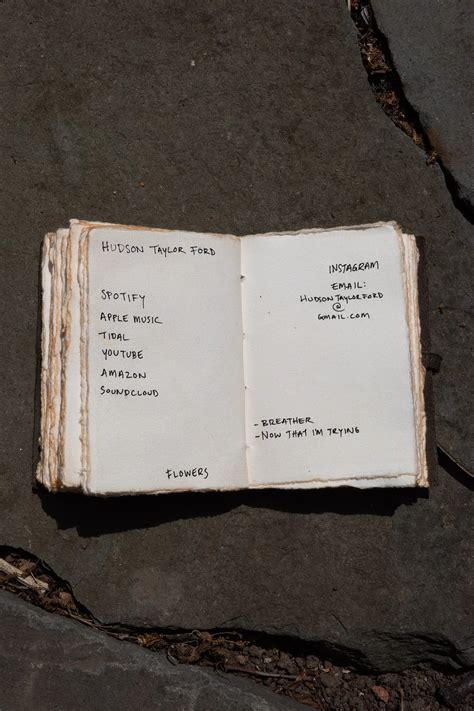 HUDSON TAYLOR FORD
SPOTIFY
APPLE MUSIC
TIDAL
YOUTUBE
AMAZON
SOUNDCLOUD
FLOWERS
INSTAGRAM
EMAIL:
HUDSONTAYLORFORD
@
GMAIL.COM
-BREATHER
-NOW THAT I'M TRYING